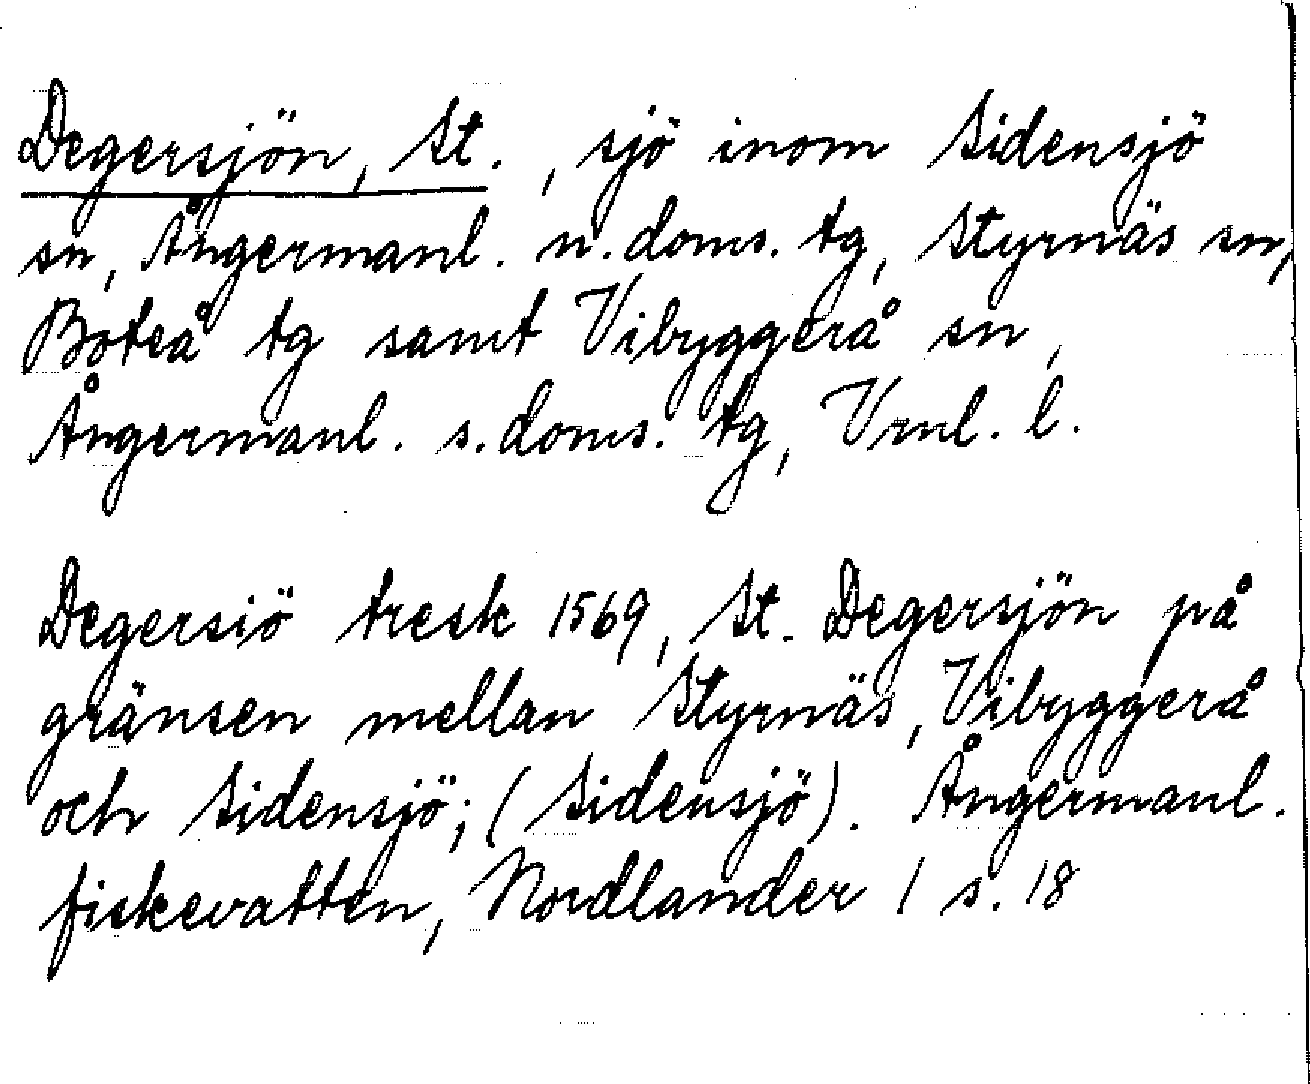 Degersjön, St., sjö inom Sidensjö
sn, Ångermanl. n. doms. tg, Styrnäs sn,
Boteå tg samt Vibyggerå sn,
Ångermanl. s. doms. tg, Vrnl. l.
Degersiö tresk 1569, St. Degersjön på
gränsen mellan Styrnäs, Vibyggerå
och Sidensjö; (Sidensjö). Ångermanl.
fiskevatten, Nordlander 1 s. 18